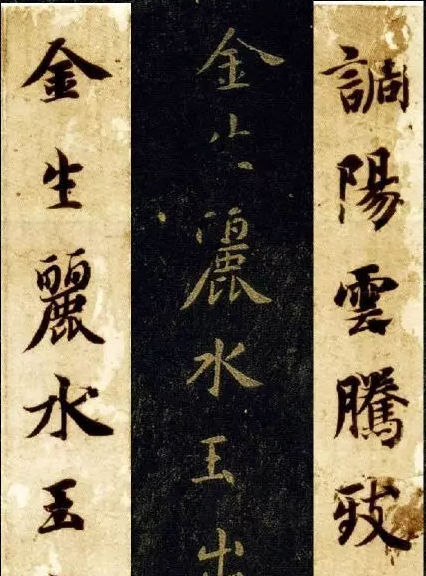 調陽雲騰致
金生麗水玉出
金生麗水玉